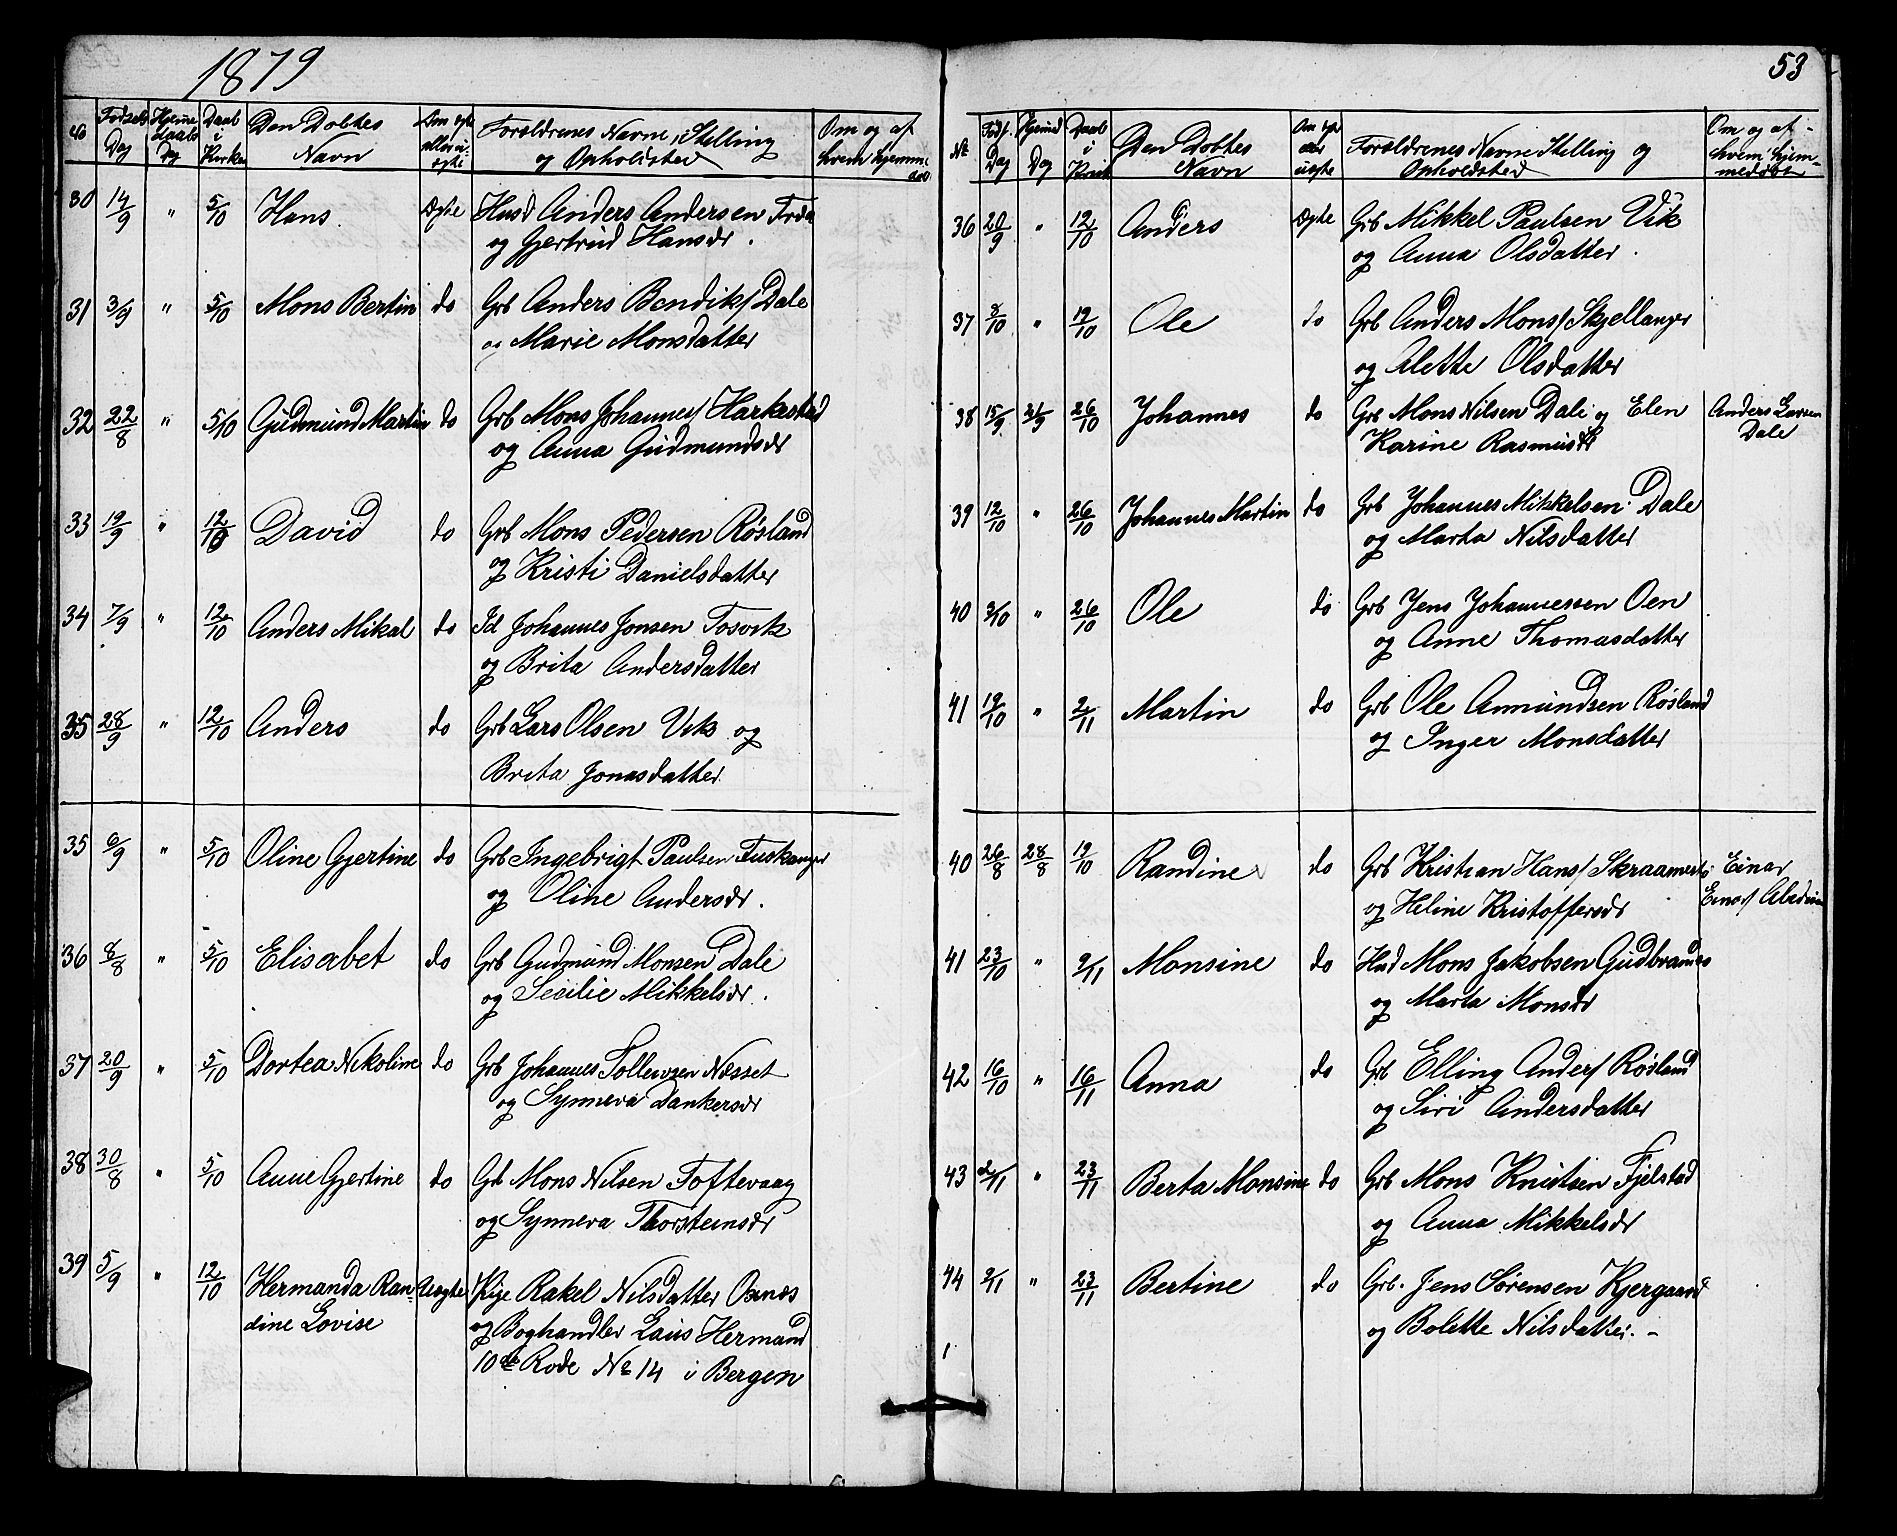 1879
No Fødsels Dag Hjemedaabs Dag Daab i Kirken Den Døbtes Navn Om ægte eller uægte Forældrenes Navne, Stilling og Opholdsted Om og af hvem hjemmedøbt
30 14/9 " 5/10 Hans Ægte Husd Anders Andersen
og Gjertrud Hansdr.
31 3/9 " 5/10 Mons Bertin do Grb Anders Bendiks/ Dale
og Marie Monsdatter
32 22/8 " 5/10 Gudmund Martin do Grb Mons Johannes/ Harkestad
og Anna Gudmundsdr
33 19/9 " 12/10 David do Grb Mons Pedersen Røsland
og Kristi Danielsdatter
34 7/9 " 12/10 Anders Mikal do Id Johannes Jonsen Tosvik
og Brita Andersdatter
35 28/9 " 12/10 Anders do Grb Lars Olsen Vik og
Brita Jonasdatter
35 6/9 " 5/10 Oline Gjertine do Grb Ingebrigt Paulsen Tuskanger
og Oline Andersdr.
36 8/8 " 5/10 Elisabet do Grb Gudmund Monsen Dale
og Secilie Mikkelsdr.
37 20/9 " 5/10 Dortea Nikoline do Grb Johannes Tollevsen Næsset
og Synneva Dankersdr
38 30/8 " 5/10 Anne Gjertine do Grb Mons Nilsen Toftevaag
og Synneva Thorsteinsdr
39 5/9 " 12/10 Hermanda Ran- Uægte Pige Rakel Nilsdatter Osnes
dine Lovise og Boghandler Laus Hermand
10de Rode No 14 i Bergen
53
No Føds. Dag Hjemd Dag Daab i Kirk Den Døbtes Navn Om ægte eller uægte Forældrenes Navne Stilling og Opholdsted Om og af hvem hjemmedøbt
36 20/9 " 12/10 Anders Ægte Grb Mikkel Paulsen Vik
og Anna Olsdatter.
37 8/10 " 19/10 Ole do Grb Anders Mons/ Skjellanger
og Alette Olsdatter
38 15/9 21/9 26/10 Johannes do Grb Mons Nilsen Dale og Elen Anders Larsen
Karine Rasmusdr Dale
39 12/10 " 26/10 Johannes Martin do Grb Johannes Mikkelsen Dale
og Marta Nilsdatter
40 3/10 " 26/10 Ole do Grb Jens Johannessen Oen
og Anne Thomasdatter
41 19/10 " 2/11 Martin do Grb Ole Anmundsen Røsland
og Inger Monsdatter
40 26/8 28/8 19/10 Randine do Grb Kristian Hans/ Skraamest. Einar
og Heline Kristoffersdr Einas/
41 23/10 " 9/11 Monsine do Husd Mons Jakobsen Gudbrandsø
og Marta Monsdr
42 16/10 " 16/11 Anna do Grb Elling Anders/ Røsland
og Siri Andersdatter
43 2/11 " 23/11 Berta Monsine do Grb Mons Knudsen Fjelstad
og Anna Mikkelsdr
44 9/11 " 23/11 Bertine do Grb. Jens Sørensen Kjergaard
og Bolette Nilsdatter. -